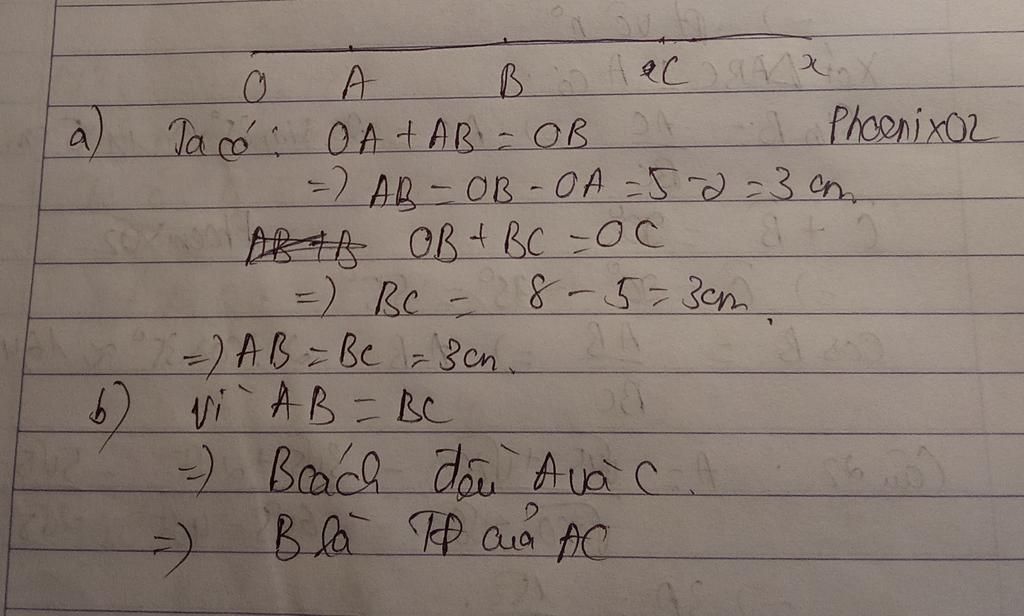 O A B C x
a) Ta có: OA + AB = OB Phoenix02
=> AB = OB - OA = 5 - 2 = 3 cm
OB + BC = OC
=> BC = 8 - 5 = 3cm.
=> AB = BC = 3cm.
b) Vì AB = BC
=> B cách đều A và C.
=> B là TĐ của AC